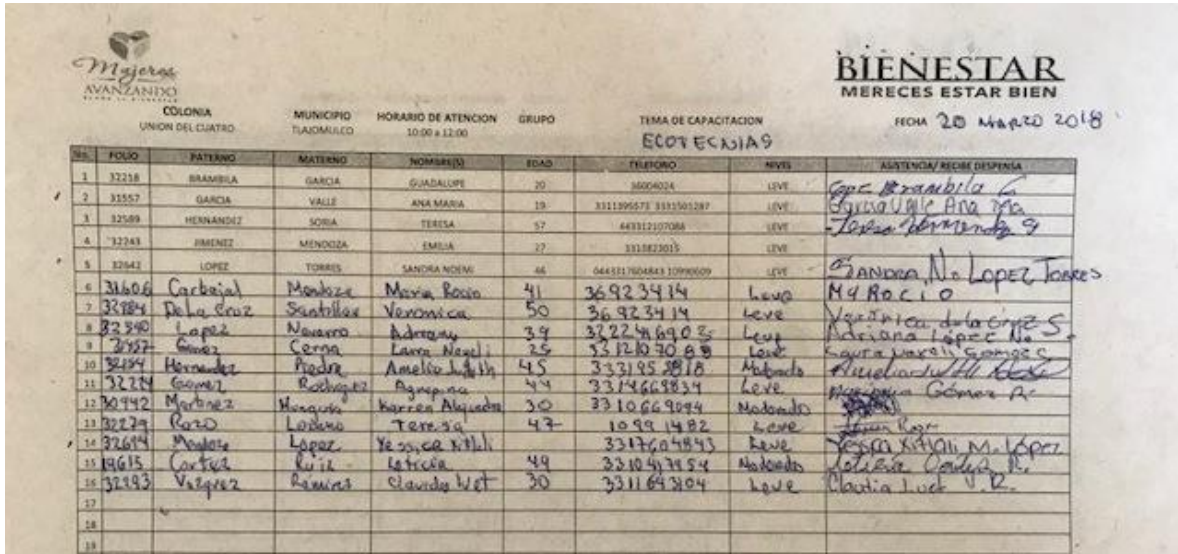 Mujeres
AVANZANDO
BIENESTAR
MERECES ESTAR BIEN
COLONIA MUNICIPIO HORARIO DE ATENCION GRUPO TEMA DE CAPACITACION FECHA 20 MARZO 2018
UNION DEL CUATRO TLAJOMULCO 10:00 a 12:00 ECOTECNIAS
No. FOLIO PATERNO MATERNO NOMBRE(S) EDAD TELEFONO NIVEL ASISTENCIA/ RECIBE DESPENSA
1 32218 BRAMBILA GARCIA GUADALUPE 20 36004024 LEVE Brambila G
2 31557 GARCIA VALLE ANA MARIA 19 3311395573 3331501287 LEVE Garcia Valle Ana Ma.
3 32589 HERNANDEZ SORIA TERESA 57 443312107088 LEVE Teresa Hernandez
4 32243 JIMENEZ MENDOZA EMILIA 27 3313823015 LEVE
5 32642 LOPEZ TORRES SANDRA NOEMI 46 0443317604843 10990609 LEVE SANDRA N. LOPEZ TORRES
6 31606 Carbajal Mendoza Maria Rocio 41 36923414 Leve Ma ROCIO
7 32984 De La Cruz Santillan Veronica 50 36923414 Leve Verónica de la Cruz S.
8 32540 Lopez Navarro Adriana 39 Leve Adriana López N.
9 Gomez Cerna Laura Nayeli 25 Leve Laura Nayeli Gomez C
10 Hernandez Piedra Amelia Judith 45 Moderado
11 Gomez Rodriguez Agrepina 44 3314669834 Leve Gómez R.
12 30942 Martinez Munguia Karren Alejandra 30 3310669094 Moderado
13 32279 Rozo Lozano Teresa 47 10991482 Leve
14 32694 Mendoza Lopez Yessica Xitlali 3317604843 Leve Yessica Xitlali M. López
15 19615 Cortez Ruiz Leticia 49 Moderado Leticia R.
16 32293 Vazquez Ramirez 30 3311643104 Leve Claudia V.R.
17
18
19